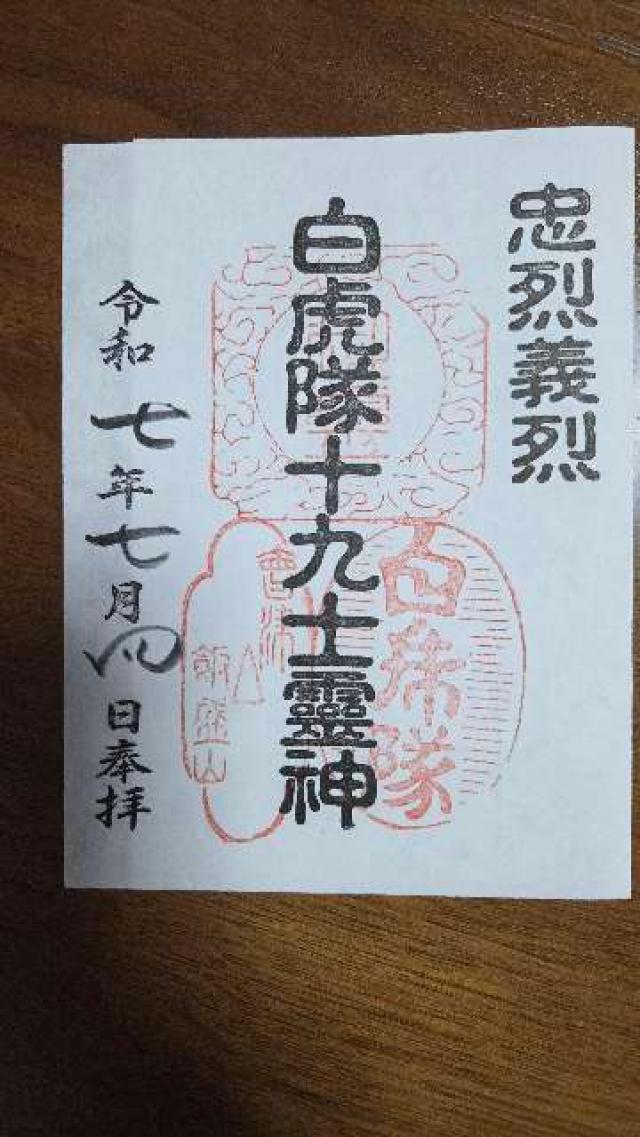 忠烈義烈
白虎隊十九士靈神
白虎隊
會津
飯盛山
令和七年七月四日奉拝